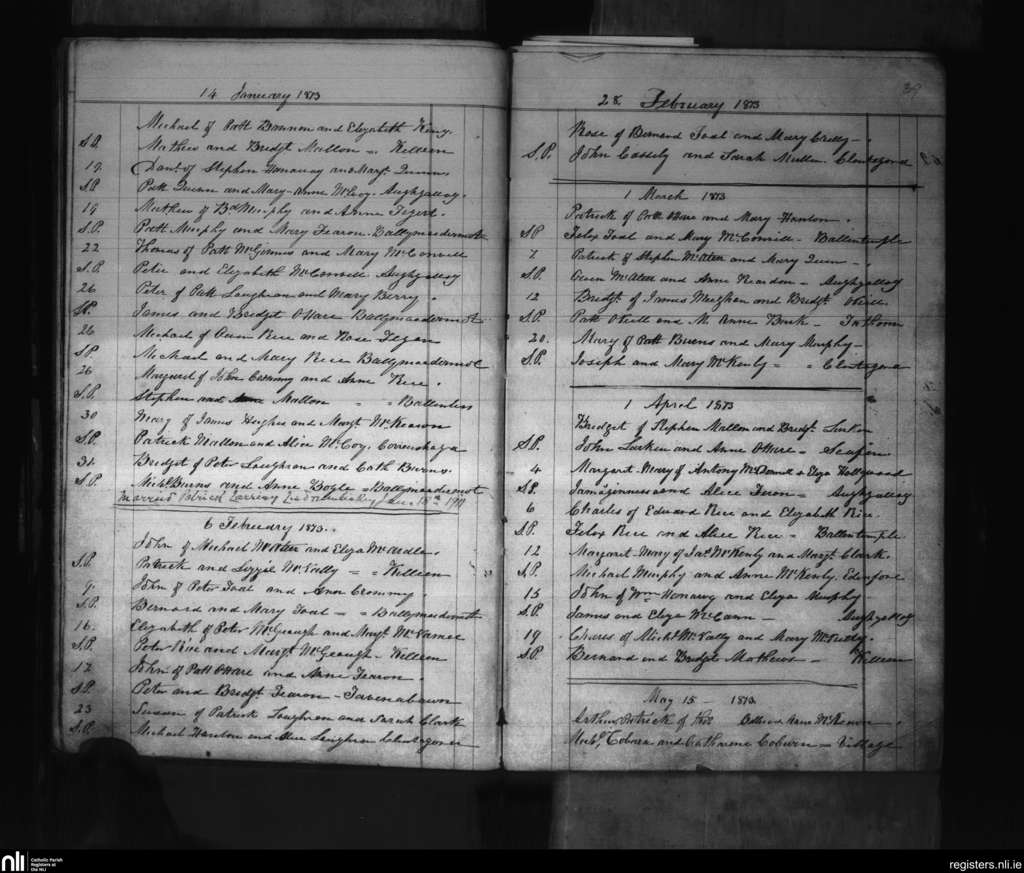 14 January 1873
Michael of Patt Brannon and Elizabeth King.
S.P. Mathew and Bridgt Mallon = Killeen
19 Danl. of Stephen Hanaway and Margt. Quinn
S.P. Patt Quinn and Mary-Anne McCoy. Aughgallay.
19 Mathew of Bd Murphy and Anne
S.P. Patt Murphy and Mary Fearon. Ballymacdermott
22 Thomas of Patt McGinnes and Mary McConvill
S.P. Peter and Elizabeth McConvill Aughgallay
26 Peter of Patt Loughran and Mary Berry
S.P. James and Bridgt O'Hare Ballymacdermot
26 Michael of Owen Rice and Rose
S.P. Michael and Mary Rice Ballymacdermot
26 Margaret of John and Anne Rice.
S.P. Stephen and Anne Mallon = = Ballinliss
30 Mary of James Hughes and Margt McKeown
S.P. Patrick Mallon and Alice McCoy.
31 Bridget of Peter Loughran and Cath Burns.
S.P. Michl Burns and Anne Boyle = Ballymacdermot
Married Jan. 18th
6 February 1873.
John of Michael and Eliza McArdle.
S.P. Patrick and Lizzie McNally = = Killeen
9. John of Peter Toal and Ann
S.P. Bernard and Mary Toal = = Ballymacdermott
16. Elizabeth of Peter McGeough and Margt McNamee
S.P. Peter Rice and Margt McGeough = Killeen
12 John of Patt O'Hare and Anne Fearon.
S.P. Peter and Bridgt Fearon -
23 Susan of Patrick Loughran and Sarah Clark
S.P. Michael Hanlon and Alice Loughran
39
28. February 1873
Rose of Bernard Toal and Mary Crilly -
S.P. John Cassily and Sarah Mullen.
1 March 1873
Patrick of Patt O'Hare and Mary Hanlon.
S.P. Felix Toal and Mary McConvill - Ballintemple
7 Patrick of Stephen McAteer and Mary Quin -
S.P. Owen McAteer and Anne Reardon = Aughgallay
12 Bridgt. of James Meighan and Bridgt. O'Neill
S.P. Patt O'Neill and M. Anne - Fathom
20. Mary of Patt Burns and Mary Murphy -
S.P. Joseph and Mary McKenly = =
1 April 1873
Bridget of Stephen Mallon and Bridgt. Larkin
S.P. John Larkin and Anne O'Hare =
4 Margaret-Mary of Antony and Eliza Hollywood
S.P. and Alice Fearon = Aughgallay
6 Charles of Edward Rice and Elizabeth Rice.
S.P. Felix Rice and Alice Rice = Ballintemple
12 Margaret-Mary of Jas. McKenly and Margt. Clark.
S.P. Michael Murphy and Anne McKenly.
15 John of Wm Hanaway and Eliza Murphy -
S.P. James and Eliza McCann - Aughgallay
19 Charles of Michl McNally and Mary
S.P. Bernard and Bridgt Mathews = Killeen
May 15 - 1873.
Arthur Patrick of and Anne McKeown
Michl. Coburn and Catharine Coburn = Village
nli
Catholic Parish
Registers at
the NLI
registers.nli.ie